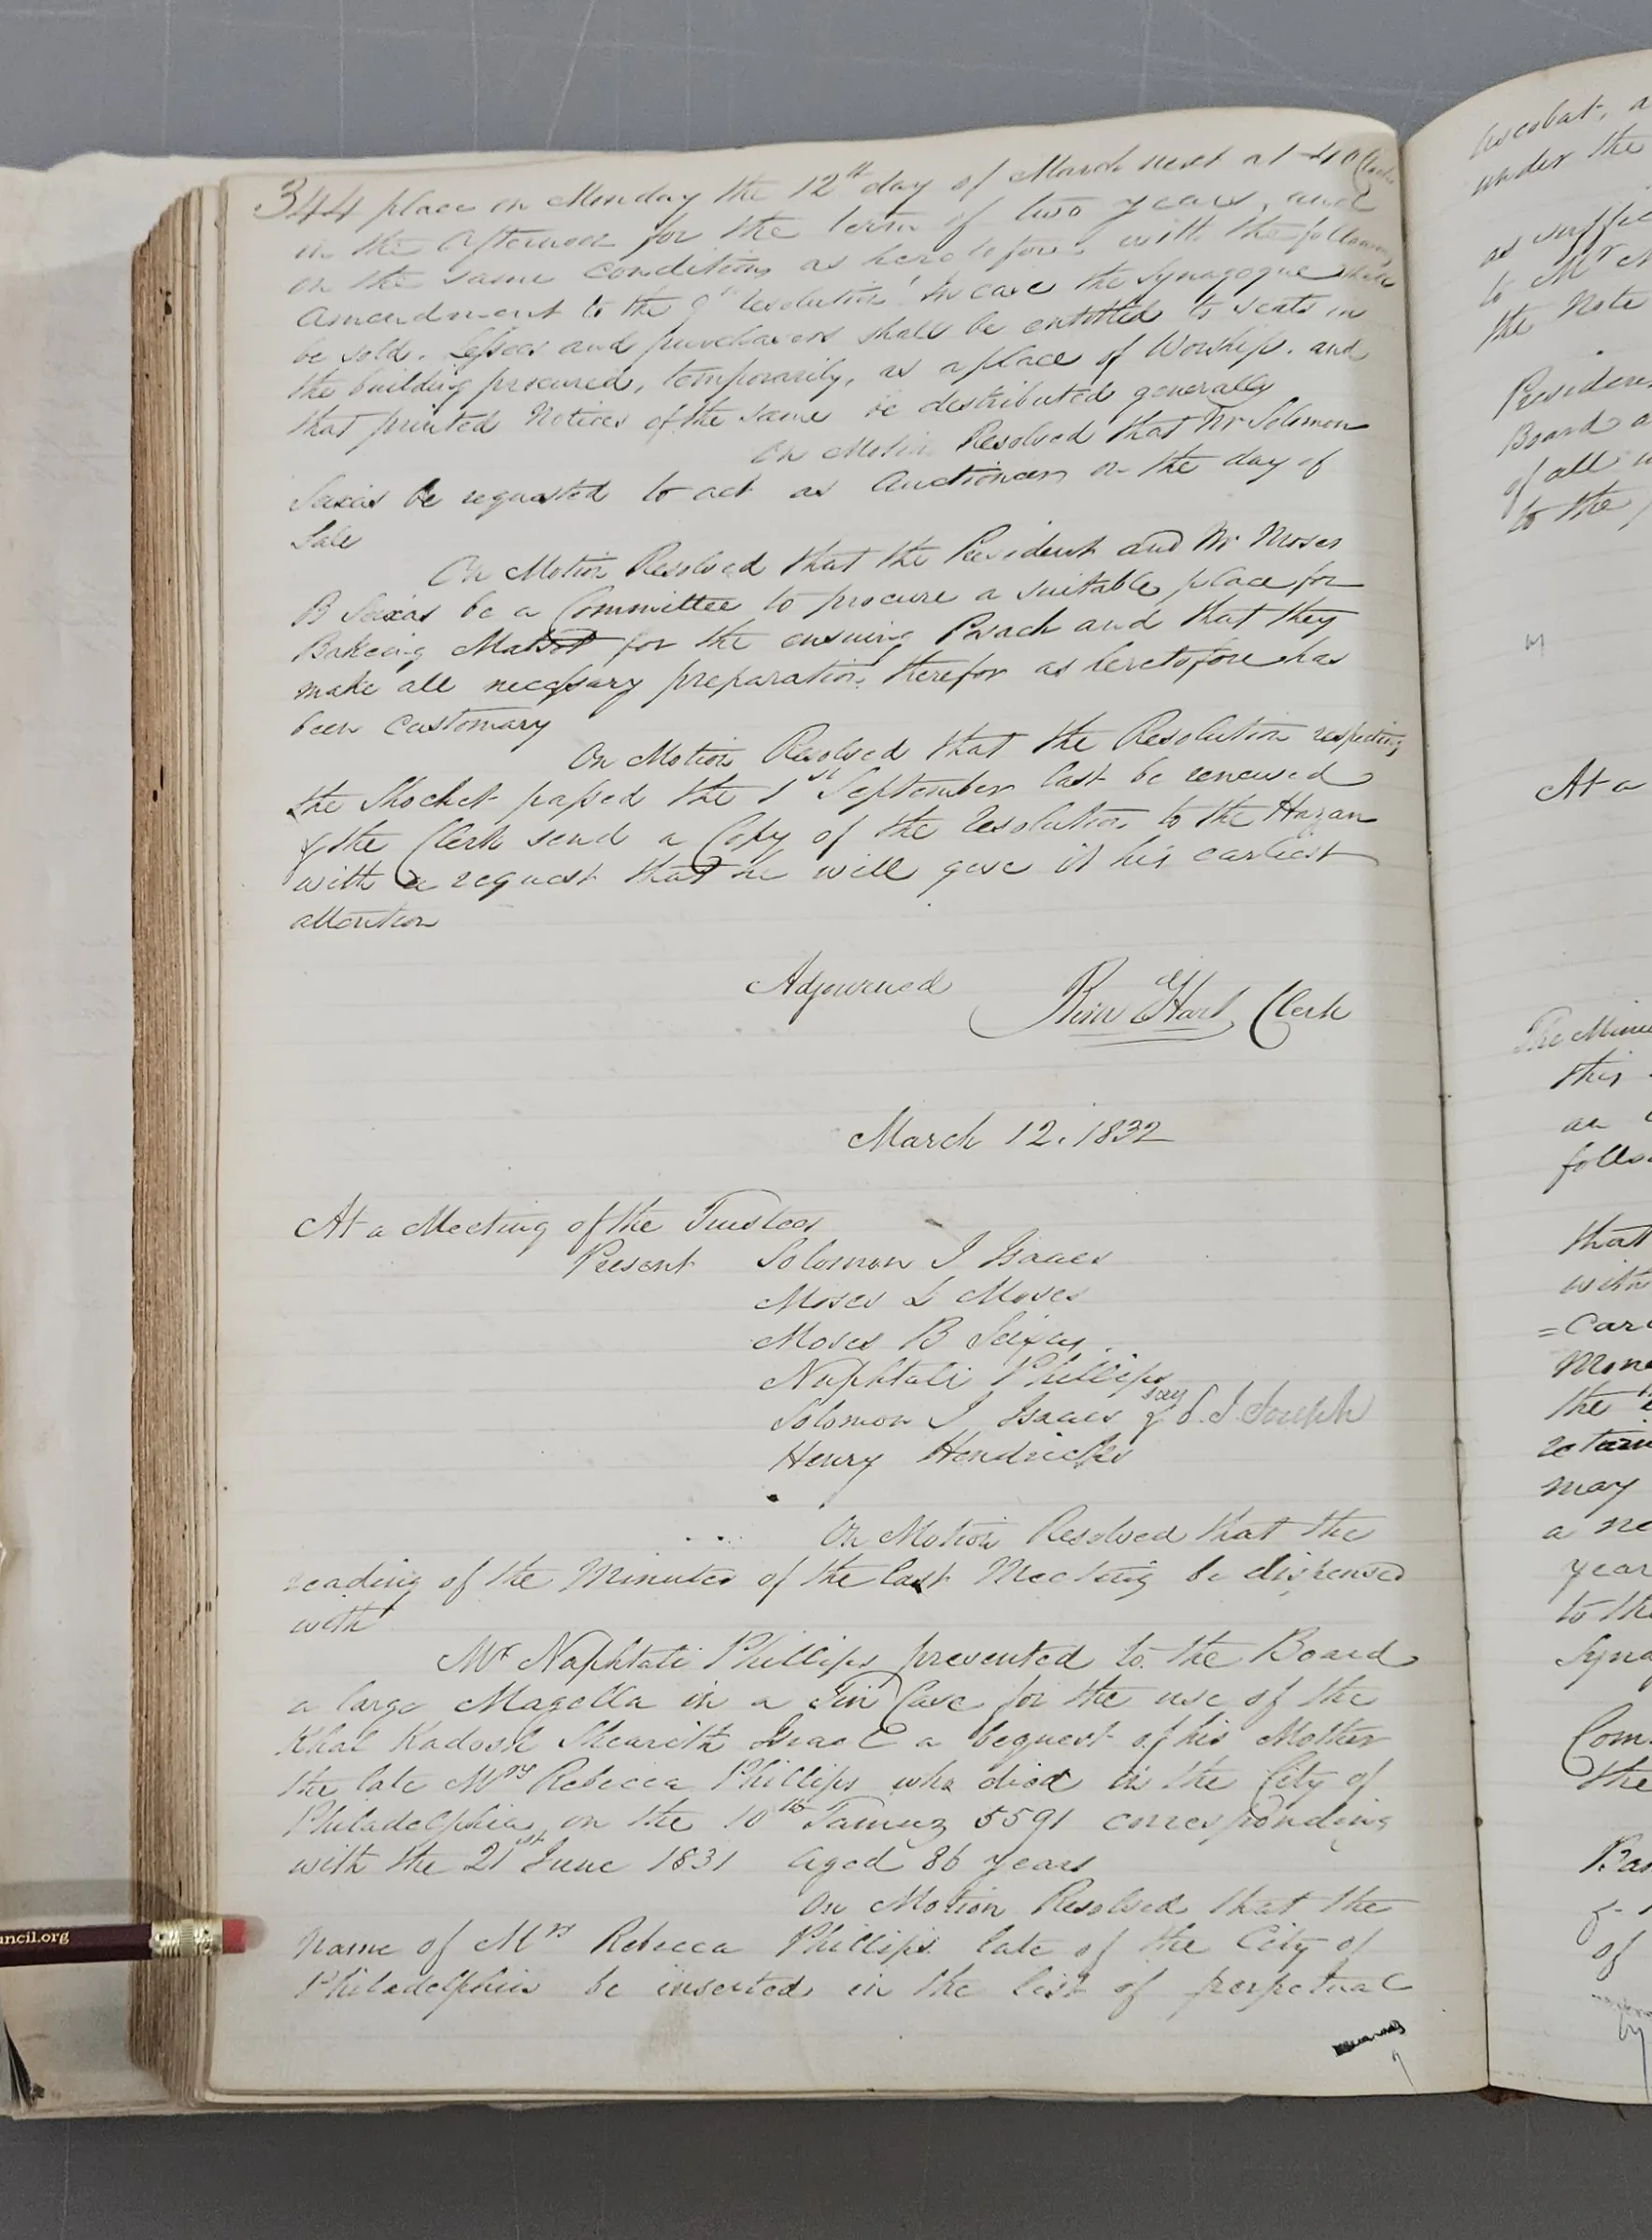 344 place on Monday the 12th day of March next at 4 O Clock
in the afternoon for the term of two years, and
on the same conditions as heretofore, with the following
amendment to the 9th resolution In case the Synagogue shall
be sold. Lessees and purchasers shall be entitled to seats in
the building procured, temporarily, as a place of Worship. and
that printed Notices of the same be destributed generally
On Motion Resolved that Mr Solomon
Seixas be requested to act as Auctioneer on the day of
Sale
On Motion Resolved that the President and Mr Moses
B Seixas be a Committee to procure a suitable place for
Bakeing Matsot for the ensuing Pesach and that they
make all necessary preparation therefor as heretofore has
been customary
On Motion Resolved that the Resolution respecting
the Shochet passed the 1st September last be renewed
& the Clerk send a Copy of the resolution to the Hazan
with a request that he will give it his earliest
attention
Adjourned Hart Clerk
March 12. 1832
At a Meeting of the Trustees
Present Solomon I Isaacs
Moses L Moses
Moses B Seixas
Naphtali Phillips
say
Solomon I Isaacs & S. I. Joseph
Henry Hendricks
On Motion Resolved that the
reading of the Minutes of the last Meeting be dispensed
with
Mr Naphtali Phillips presented to the Board
a large Magella in a Tin Case for the use of the
Khal Kadosh Shearith Israel a bequest of his Mother
the late Mrs Rebecca Phillips who died in the City of
Philadelphia on the 10th Tamuz 5591 corresponding
with the 21st June 1831 aged 86 years
On Motion Resolved that the
name of Mrs Rebecca Phillips late of the City of
Philadelphia be inserted in the list of perpetual
ncil.org
under the
as
to Mr
the Note
Board a
of all
to the
At a
The
this
an
follo
that
with
=Car
Mone
the
retain
may
a ne
year
to th
Syna
Com
the
of